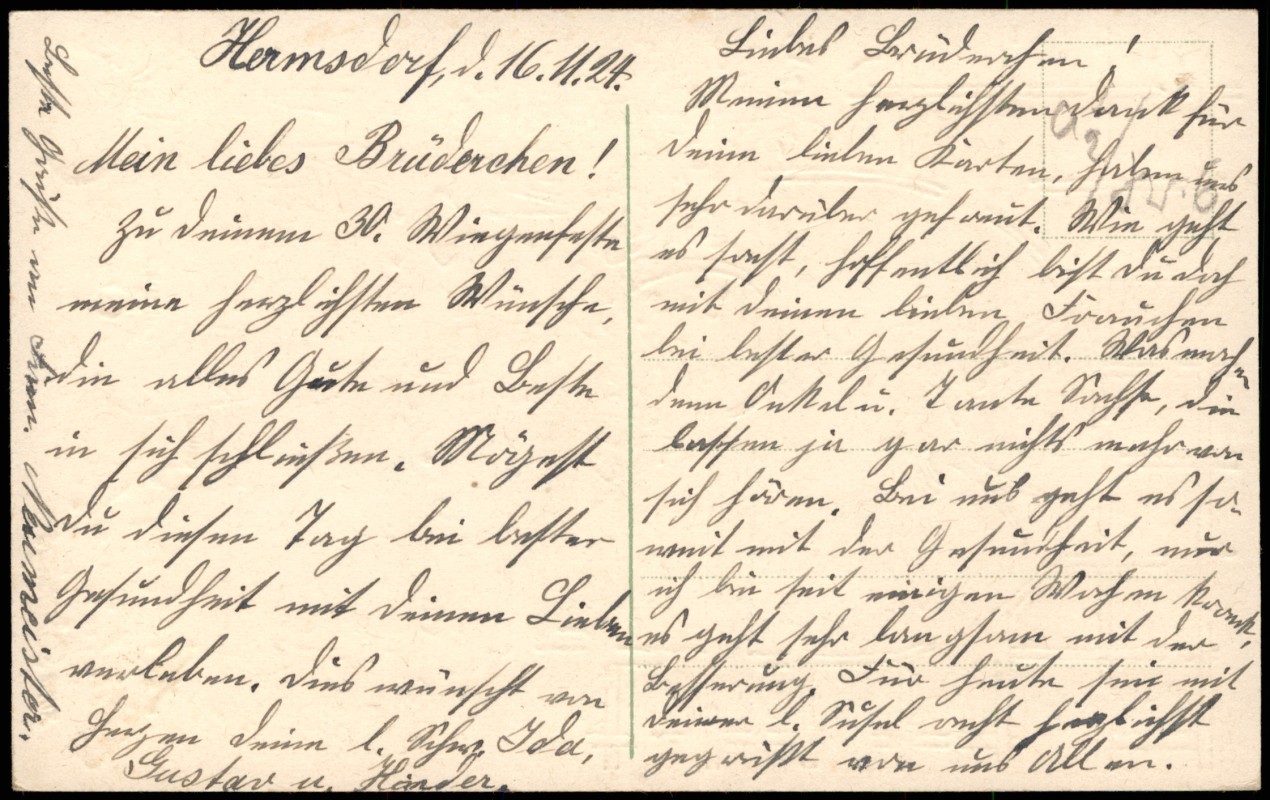 Hermsdorf, d. 16.11.24.
Mein liebes Brüderchen!
Zu deinem 30. Wiegenfeste
meine herzlichsten Wünsche,
die alles Gute und Beste
in sich schließen. Mögest
du diesen Tag bei bester
Gesundheit mit deinen Lieben
verleben. Dies wünscht von
Herzen deine l. Schw. Ida,
Gustav u. Kinder.
Beste Grüße von Fam. Neumeister.
Liebes Brüderchen!
Meinen herzlichsten Dank für
deine lieben Karten, haben uns
sehr darüber gefreut. Wie geht
es sonst, hoffentlich bist du doch
mit deinen lieben Frauchen
bei bester Gesundheit. Was machen
denn Onkel u. Tante Sachse, die
lassen ja gar nichts mehr von
sich hören. Bei uns geht es so-
weit mit der Gesundheit, nur
ich bin seit einigen Wochen krank,
es geht sehr langsam mit der
Besserung. Für heute sei mit
deiner l. Susel recht herzlichst
gegrüßt von uns Allen.